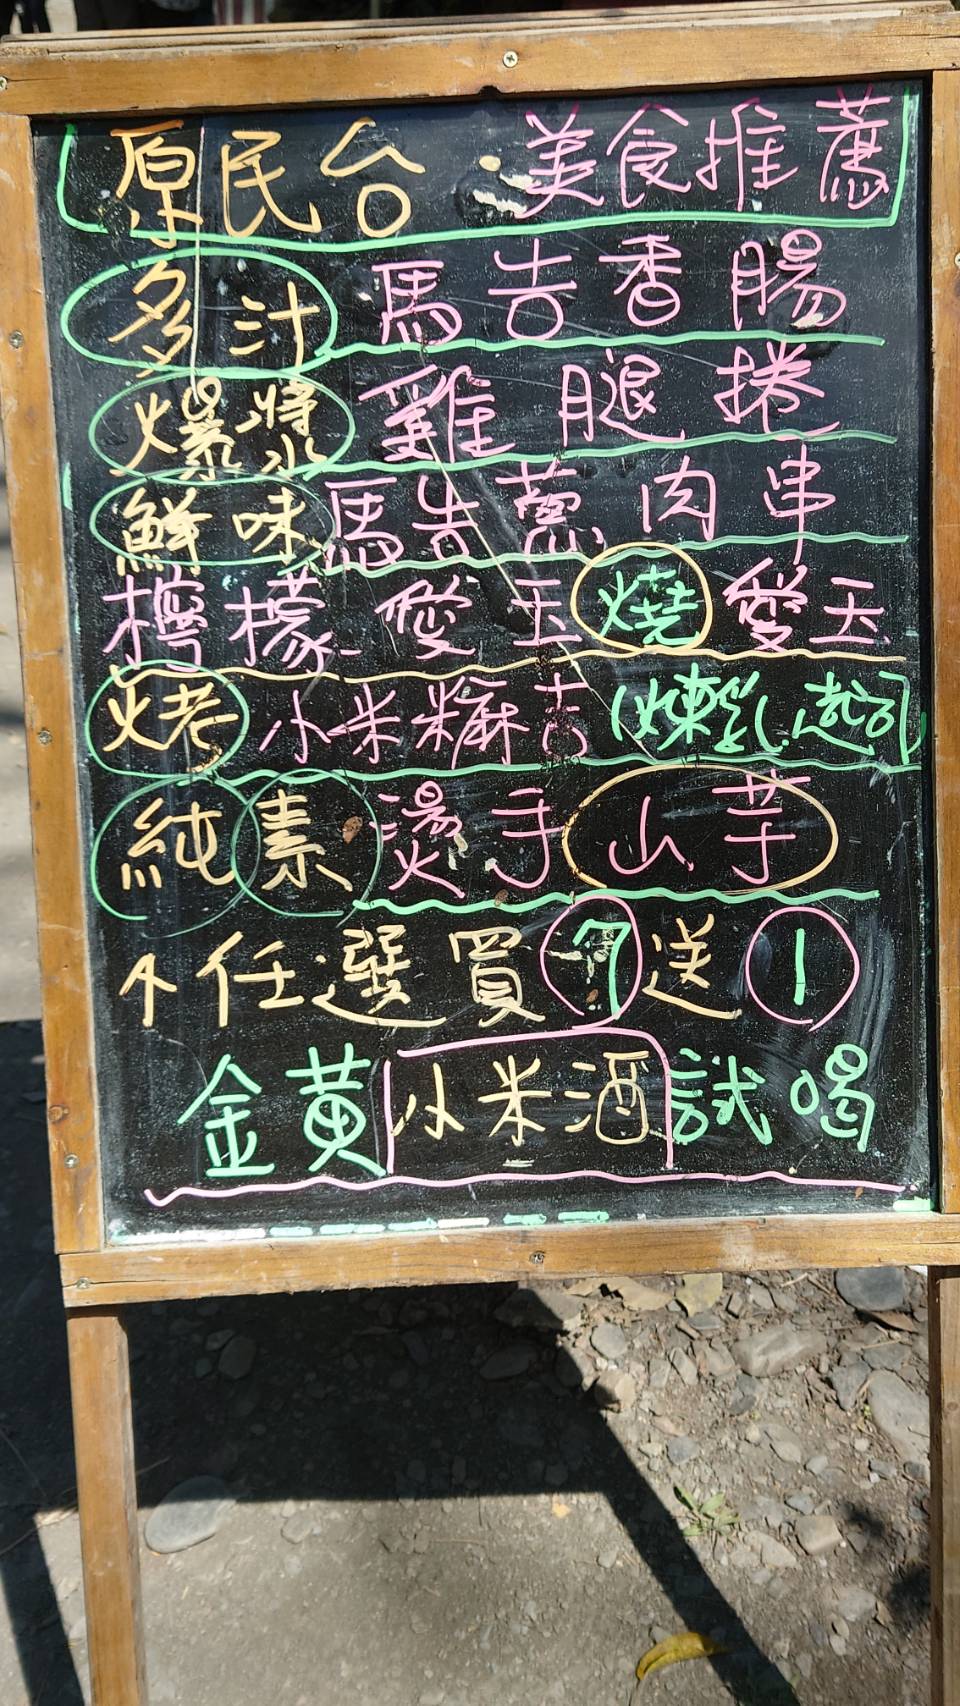 原民台 美食推薦
多汁 馬告香腸
爆漿 雞腿捲
鮮味 馬告蔥肉串
檸檬愛玉 燒愛玉
烤 小米麻吉 (煉乳.起司)
純素 燙手山芋
↑任選買7送1
金黃小米酒試喝